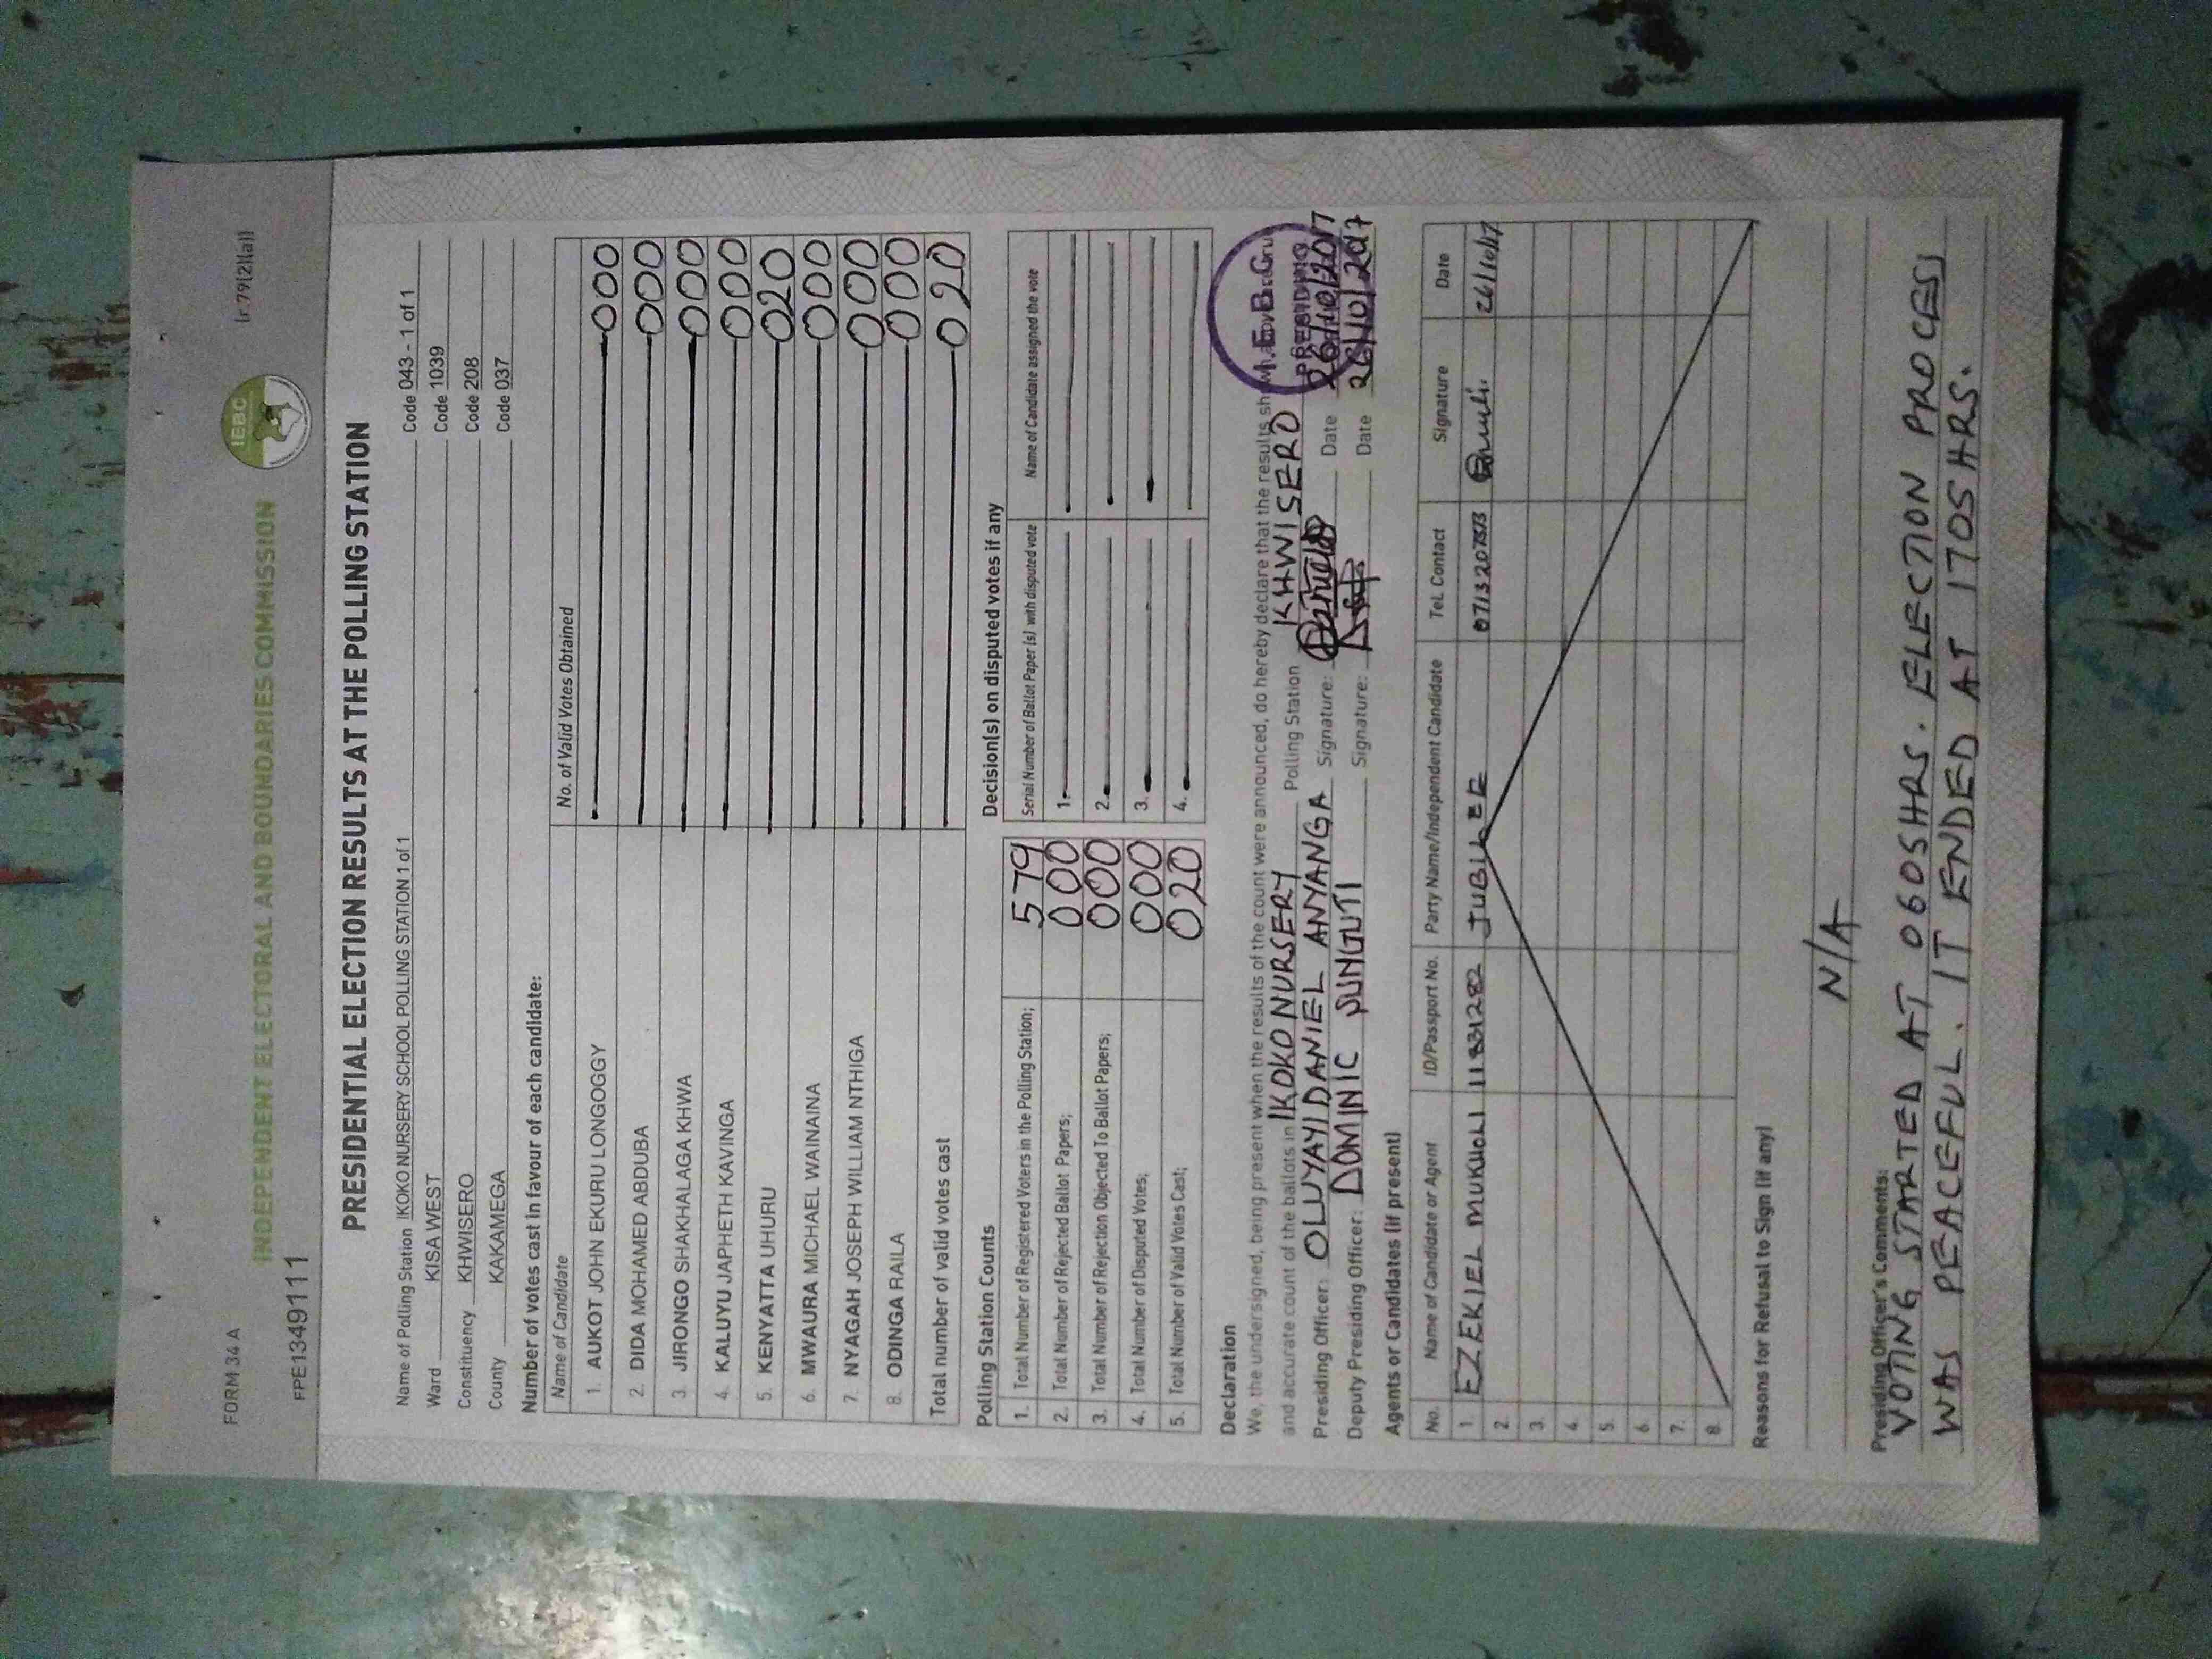 FORM 34 A
(r.79(2)(a))
INDEPENDENT ELECTORAL AND BOUNDARIES COMMISSION
IEBC
FPE1349111
PRESIDENTIAL ELECTION RESULTS AT THE POLLING STATION
Name of Polling Station IKOKO NURSERY SCHOOL POLLING STATION 1 of 1 Code 043 - 1 of 1
Ward KISA WEST Code 1039
Constituency KHWISERO Code 208
County KAKAMEGA Code 037
Number of votes cast in favour of each candidate:
Name of Candidate No. of Valid Votes Obtained
1. AUKOT JOHN EKURU LONGOGGY 000
2. DIDA MOHAMED ABDUBA 000
3. JIRONGO SHAKHALAGA KHWA 000
4. KALUYU JAPHETH KAVINGA 000
5. KENYATTA UHURU 020
6. MWAURA MICHAEL WAINAINA 000
7. NYAGAH JOSEPH WILLIAM NTHIGA 000
8. ODINGA RAILA 000
Total number of valid votes cast 020
Polling Station Counts
1. Total Number of Registered Voters in the Polling Station; 579
2. Total Number of Rejected Ballot Papers; 000
3. Total Number of Rejection Objected To Ballot Papers; 000
4. Total Number of Disputed Votes; 000
5. Total Number of Valid Votes Cast; 020
Decision(s) on disputed votes if any
Serial Number of Ballot Paper (s) with disputed vote Name of Candidate assigned the vote
1.
2.
3.
4.
Declaration
We, the undersigned, being present when the results of the count were announced, do hereby declare that the results
and accurate count of the ballots in IKOKO NURSERY Polling Station KHWISERO
I.E.B.C
PRESIDING
Presiding Officer: OLUYAYI DANIEL ANYANGA Signature: Date 26/10/2017
Deputy Presiding Officer: DOMINIC SUNGUTI Signature: Date 26/10/2017
Agents or Candidates (if present)
No. Name of Candidate or Agent ID/Passport No. Party Name/Independent Candidate Tel. Contact Signature Date
1. EZEKIEL MUKUOLI JUBILEE 26/10/17
2.
3.
4.
5.
6.
7.
8.
Reasons for Refusal to Sign (if any)
N/A
Presiding Officer's Comments:
VOTING STARTED AT 0605HRS. ELECTION PROCESS
WAS PEACEFUL. IT ENDED AT 1705HRS.